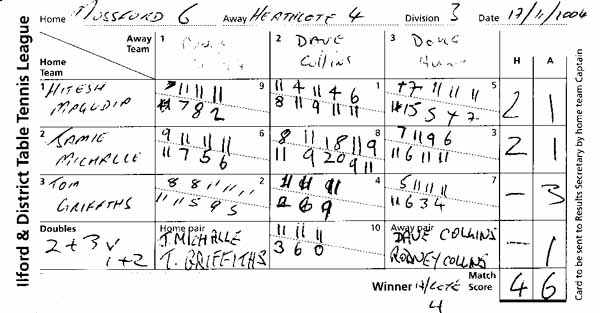 Home MOSSFORD 6 Away HEATHCOTE 4 Division 3 Date 17/11/2004
Ilford & District Table Tennis League
Away Team
Home Team
1
2 DAVE COLLINS
3 DOUG
H A
1 HITESH
9
11 4 11 4 6 1
8 11 9 11 11
5
2 1
2 JAMIE MICHALLE
9 11 11 11 6
11 7 5 6
8 11 18 11 9 8
11 9 20 9 11
7 11 9 6 3
11 6 11 11
2 1
3 TOM GRIFFITHS
8 8 11 11 11 2
11 11 5 9 5
4
5 11 11 11 7
11 6 3 4
- 3
Doubles
2 + 3 v 1 + 2
Home pair
J. MICHALLE
T. GRIFFITHS
11 11 11 10
3 6 0
Away pair
DAVE COLLINS
RODNEY COLLINS
- 1
Winner H/COTE 4
Match Score 4 6
Card to be sent to Results Secretary by home team Captain